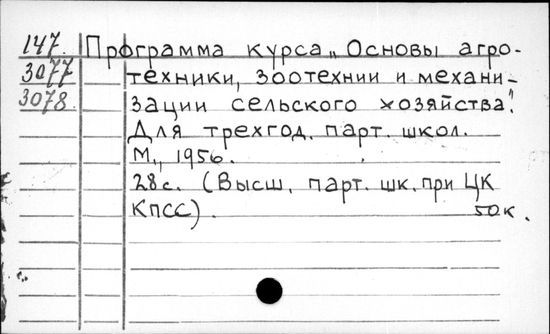 147. Программа курса „Основы агро-
3077 техники, зоотехнии и механи-
3078 зации сельского хозяйства".
Для трехгод. парт. школ.
М., 1956.
28с. (Высш. парт. шк. при ЦК
КПСС). 50к.